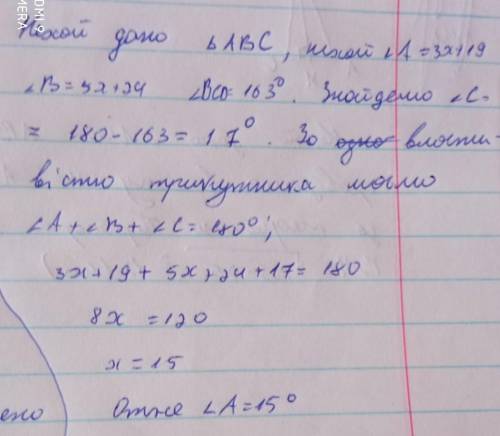 Нехай дано ΔABC, нехай ∠A = 3x+19
∠B = 5x+24 ∠BCD = 163°. Знайдемо ∠C =
= 180 - 163 = 17°. За одно власти-
вістю трикутника маємо
∠A + ∠B + ∠C = 180°;
3x + 19 + 5x + 24 + 17 = 180
8x = 120
x = 15
Отже ∠A = 15°